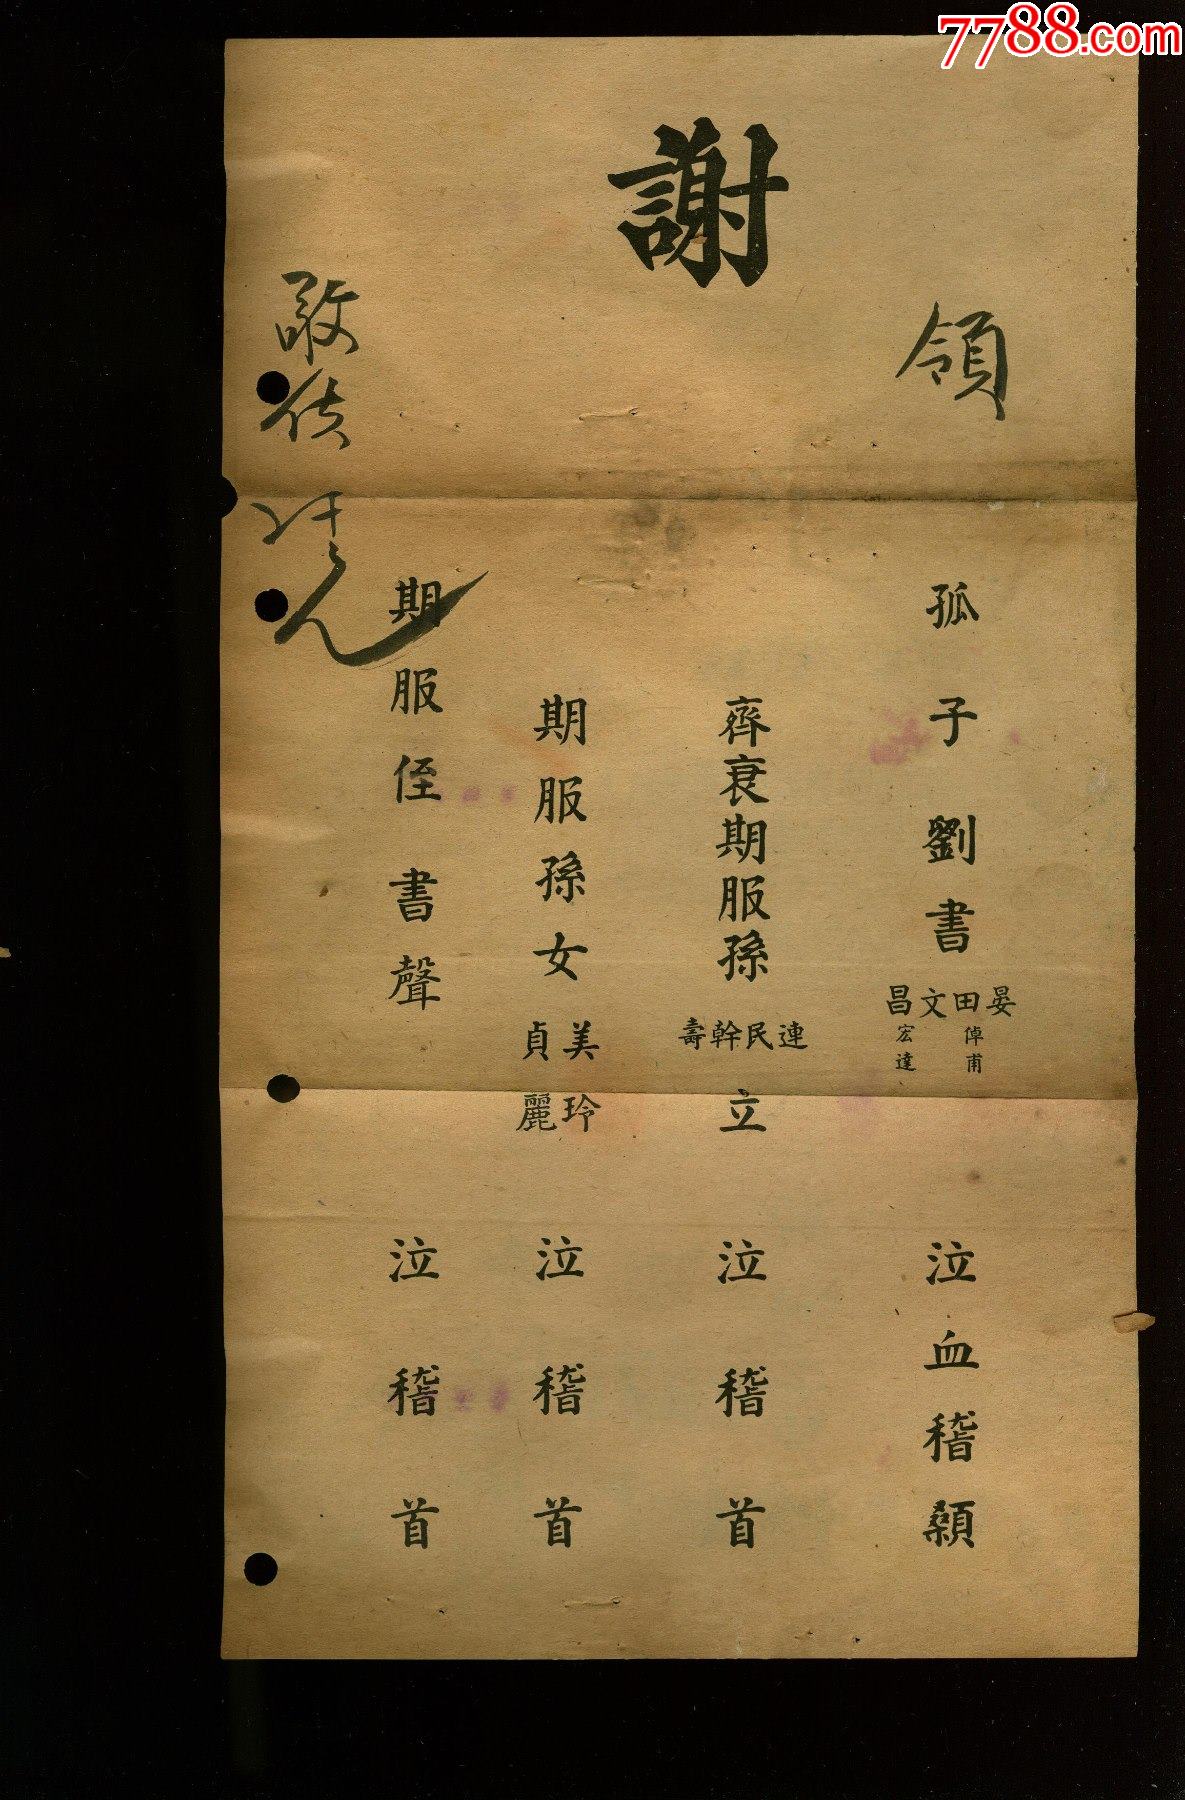 7788.com
領
謝
孤子劉書晏田倬甫文昌宏達泣血稽顙
齊衰期服孫連民幹壽立泣稽首
期服孫女美玲貞麗泣稽首
期服侄書聲泣稽首
敬使